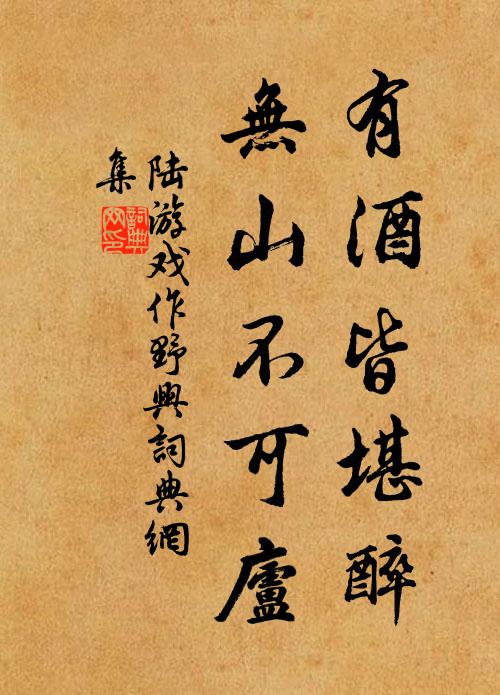 有酒皆堪醉
無山不可廬
陆游戏作野興詞典網
集
詞典
网印